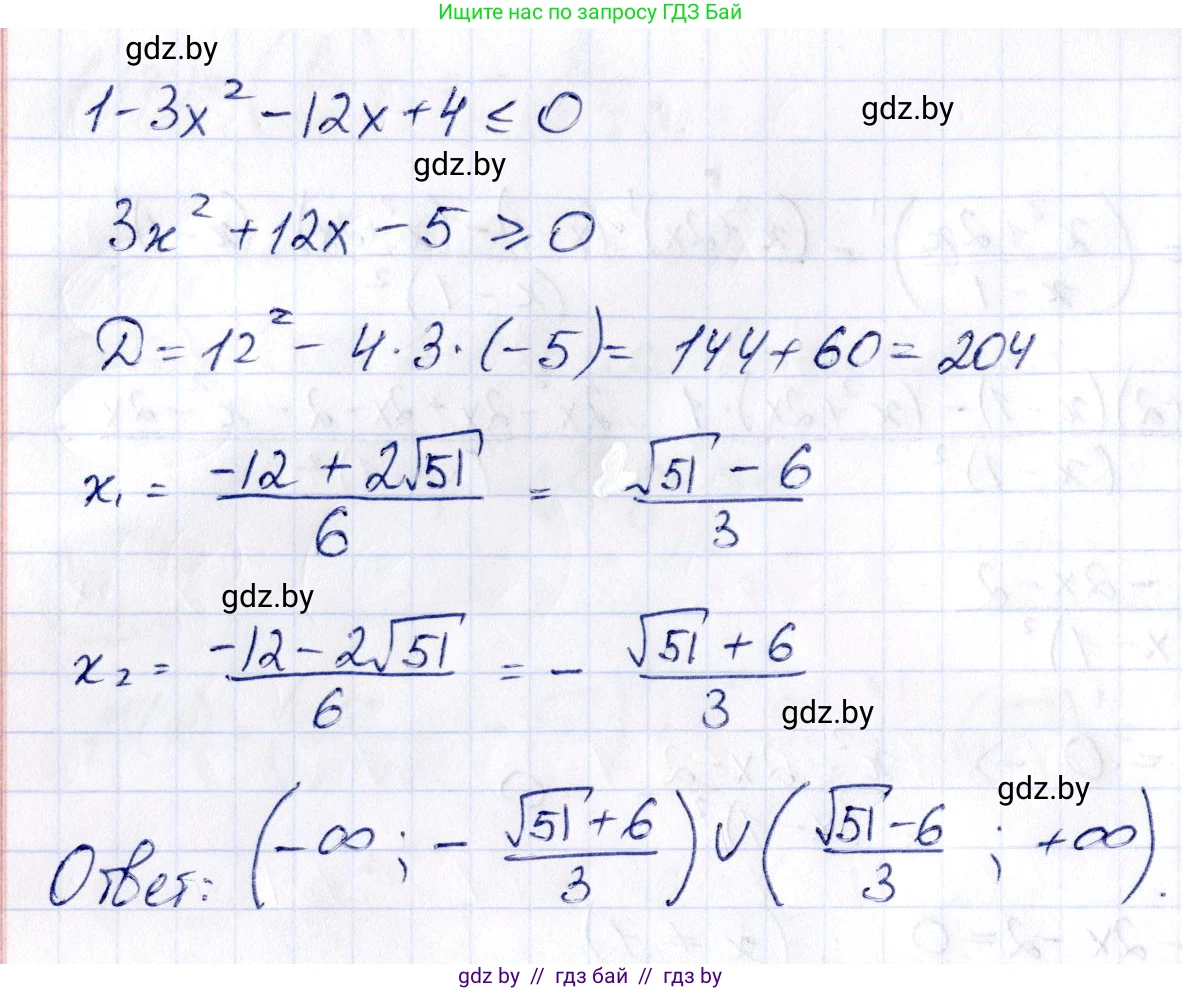 Ищите нас по запросу ГДЗ Бай
gdz.by
1-3x² -12x+4 ≤ 0
gdz.by
gdz.by
3x² +12x - 5 ≥ 0
Д = 12² - 4·3·(-5)= 144+60= 204
x₁ = (-12 + 2√51)/6 = (√51 - 6)/3
gdz.by
x₂ = (-12-2√51)/6 = - (√51 + 6)/3
gdz.by
gdz.by
Ответ: (-∞ ; - (√51+6)/3) ∪ ((√51-6)/3 ; +∞).
gdz.by // гдз бай // гдз by